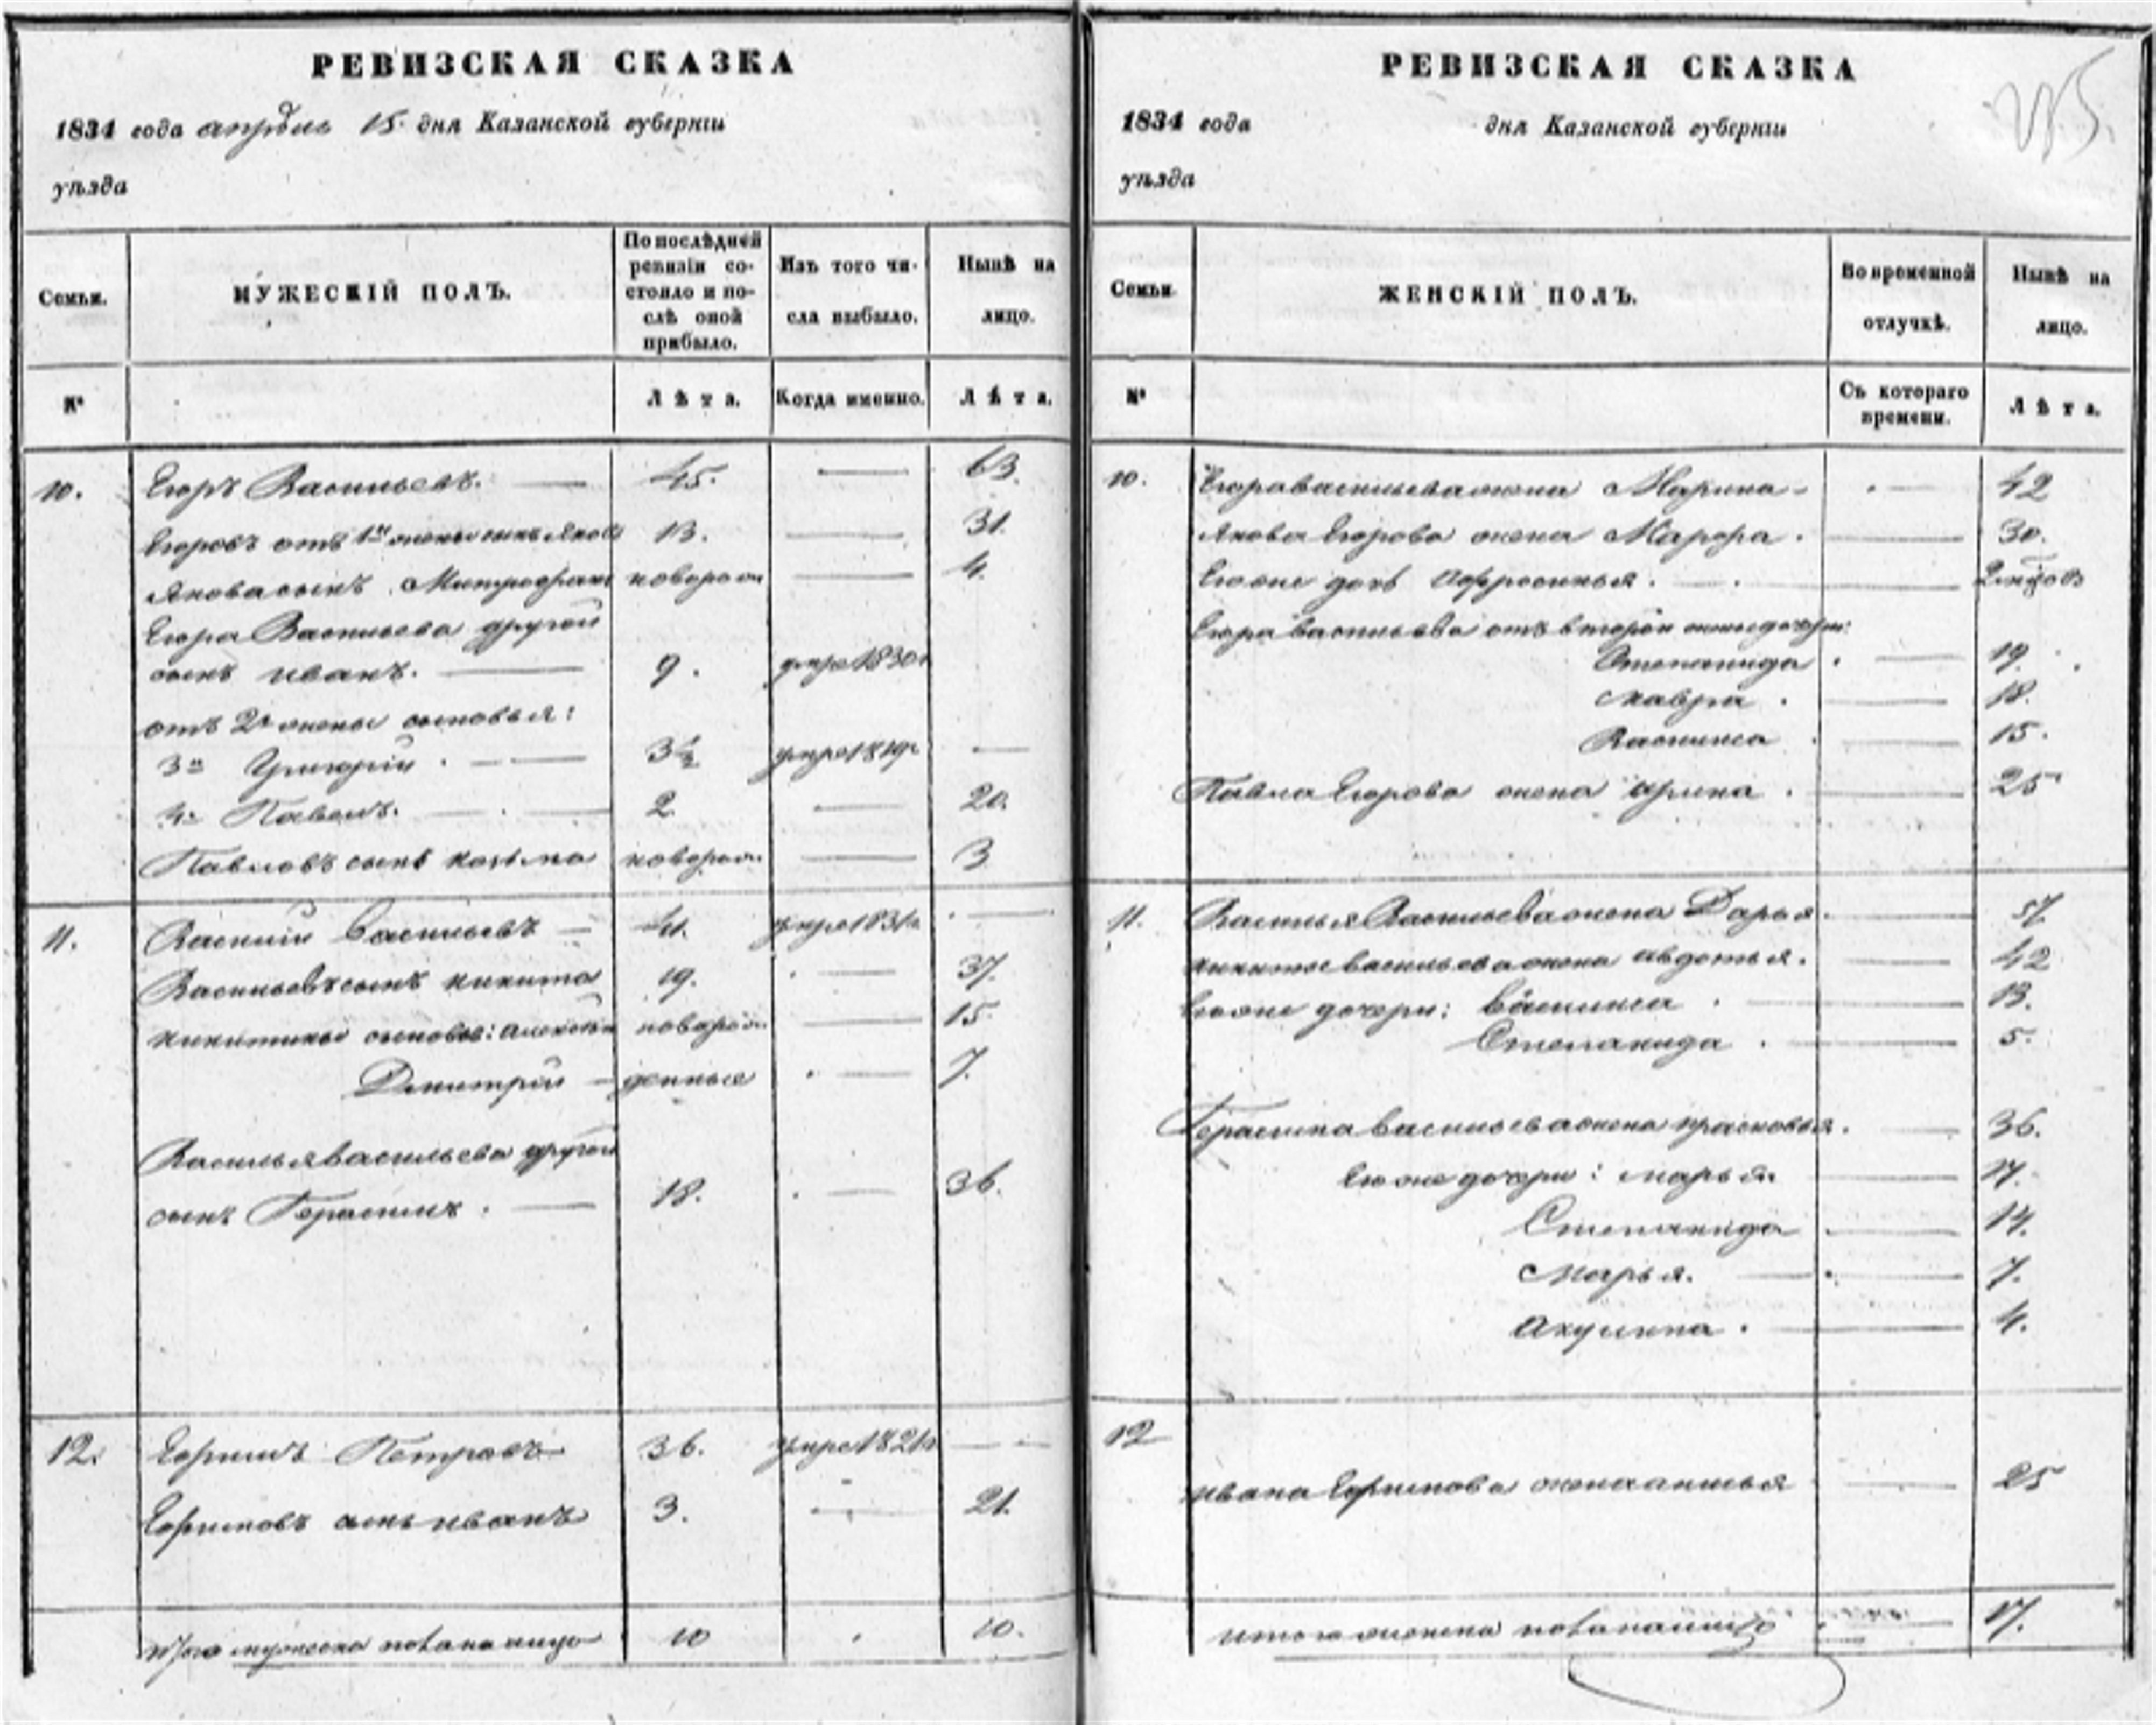 РЕВИЗСКАЯ СКАЗКА
1834 года апрѣля 15 дня Казанской губернiи
уѣзда
Семьи.
МУЖЕСКIЙ ПОЛЪ.
По послѣдней
ревизiи со-
стояло и по-
слѣ оной
прибыло.
Изъ того чи-
сла выбыло.
Нынѣ на
лицо.
№
Лѣта.
Когда именно.
Лѣта.
10. Егоръ Васильевъ. 45. 63.
Егоровъ отъ 1й жены сынъ Яковъ 13. 31.
Якова сынъ Митрофанъ новорож 4.
Егора Васильева другой
сынъ Иванъ. 9. умре 1830
отъ 2й жены сыновья:
3й Григорiй 3½ умре 1819
4й Павелъ. 2. 20.
Павловъ сынъ Козьма новорож. 3
11. Василiй Васильевъ 41. умре 1831
Васильевъ сынъ Никита 19. 37.
Никитины сыновья: Алексѣй новорож 15.
Дмитрiй денные 7.
Василья Васильева другой
сынъ Герасимъ. 18. 36.
12. Ефимъ Петровъ 36. умре 1821
Ефимовъ сынъ Иванъ 3. 21.
Итого мужеска пола на лицо 10 10.
РЕВИЗСКАЯ СКАЗКА
1834 года дня Казанской губернiи
уѣзда
Семьи
ЖЕНСКIЙ ПОЛЪ.
Во временной
отлучкѣ.
Нынѣ на
лицо.
№
Съ котораго
времени.
Лѣта.
10. Егора Васильева жена Марина 42
Якова Егорова жена Марфа. 30.
Его же дочь Афросинья. 2 мцов
Егора Васильева отъ второй жены дочери:
Степанида. 19.
Мавра. 18.
Василиса 15.
Павла Егорова жена Арина. 25
11. Василья Васильева жена Дарья. 57.
Никиты Васильева жена Авдотья. 42
Его же дочери: Василиса 13.
Степанида. 5.
Герасима Васильева жена Прасковья. 36.
Его же дочери: Марья. 17.
Степанида 14.
Марья. 7.
Акулина. 4.
12
Ивана Ефимова жена 25
Итого женска пола на лицо 17.